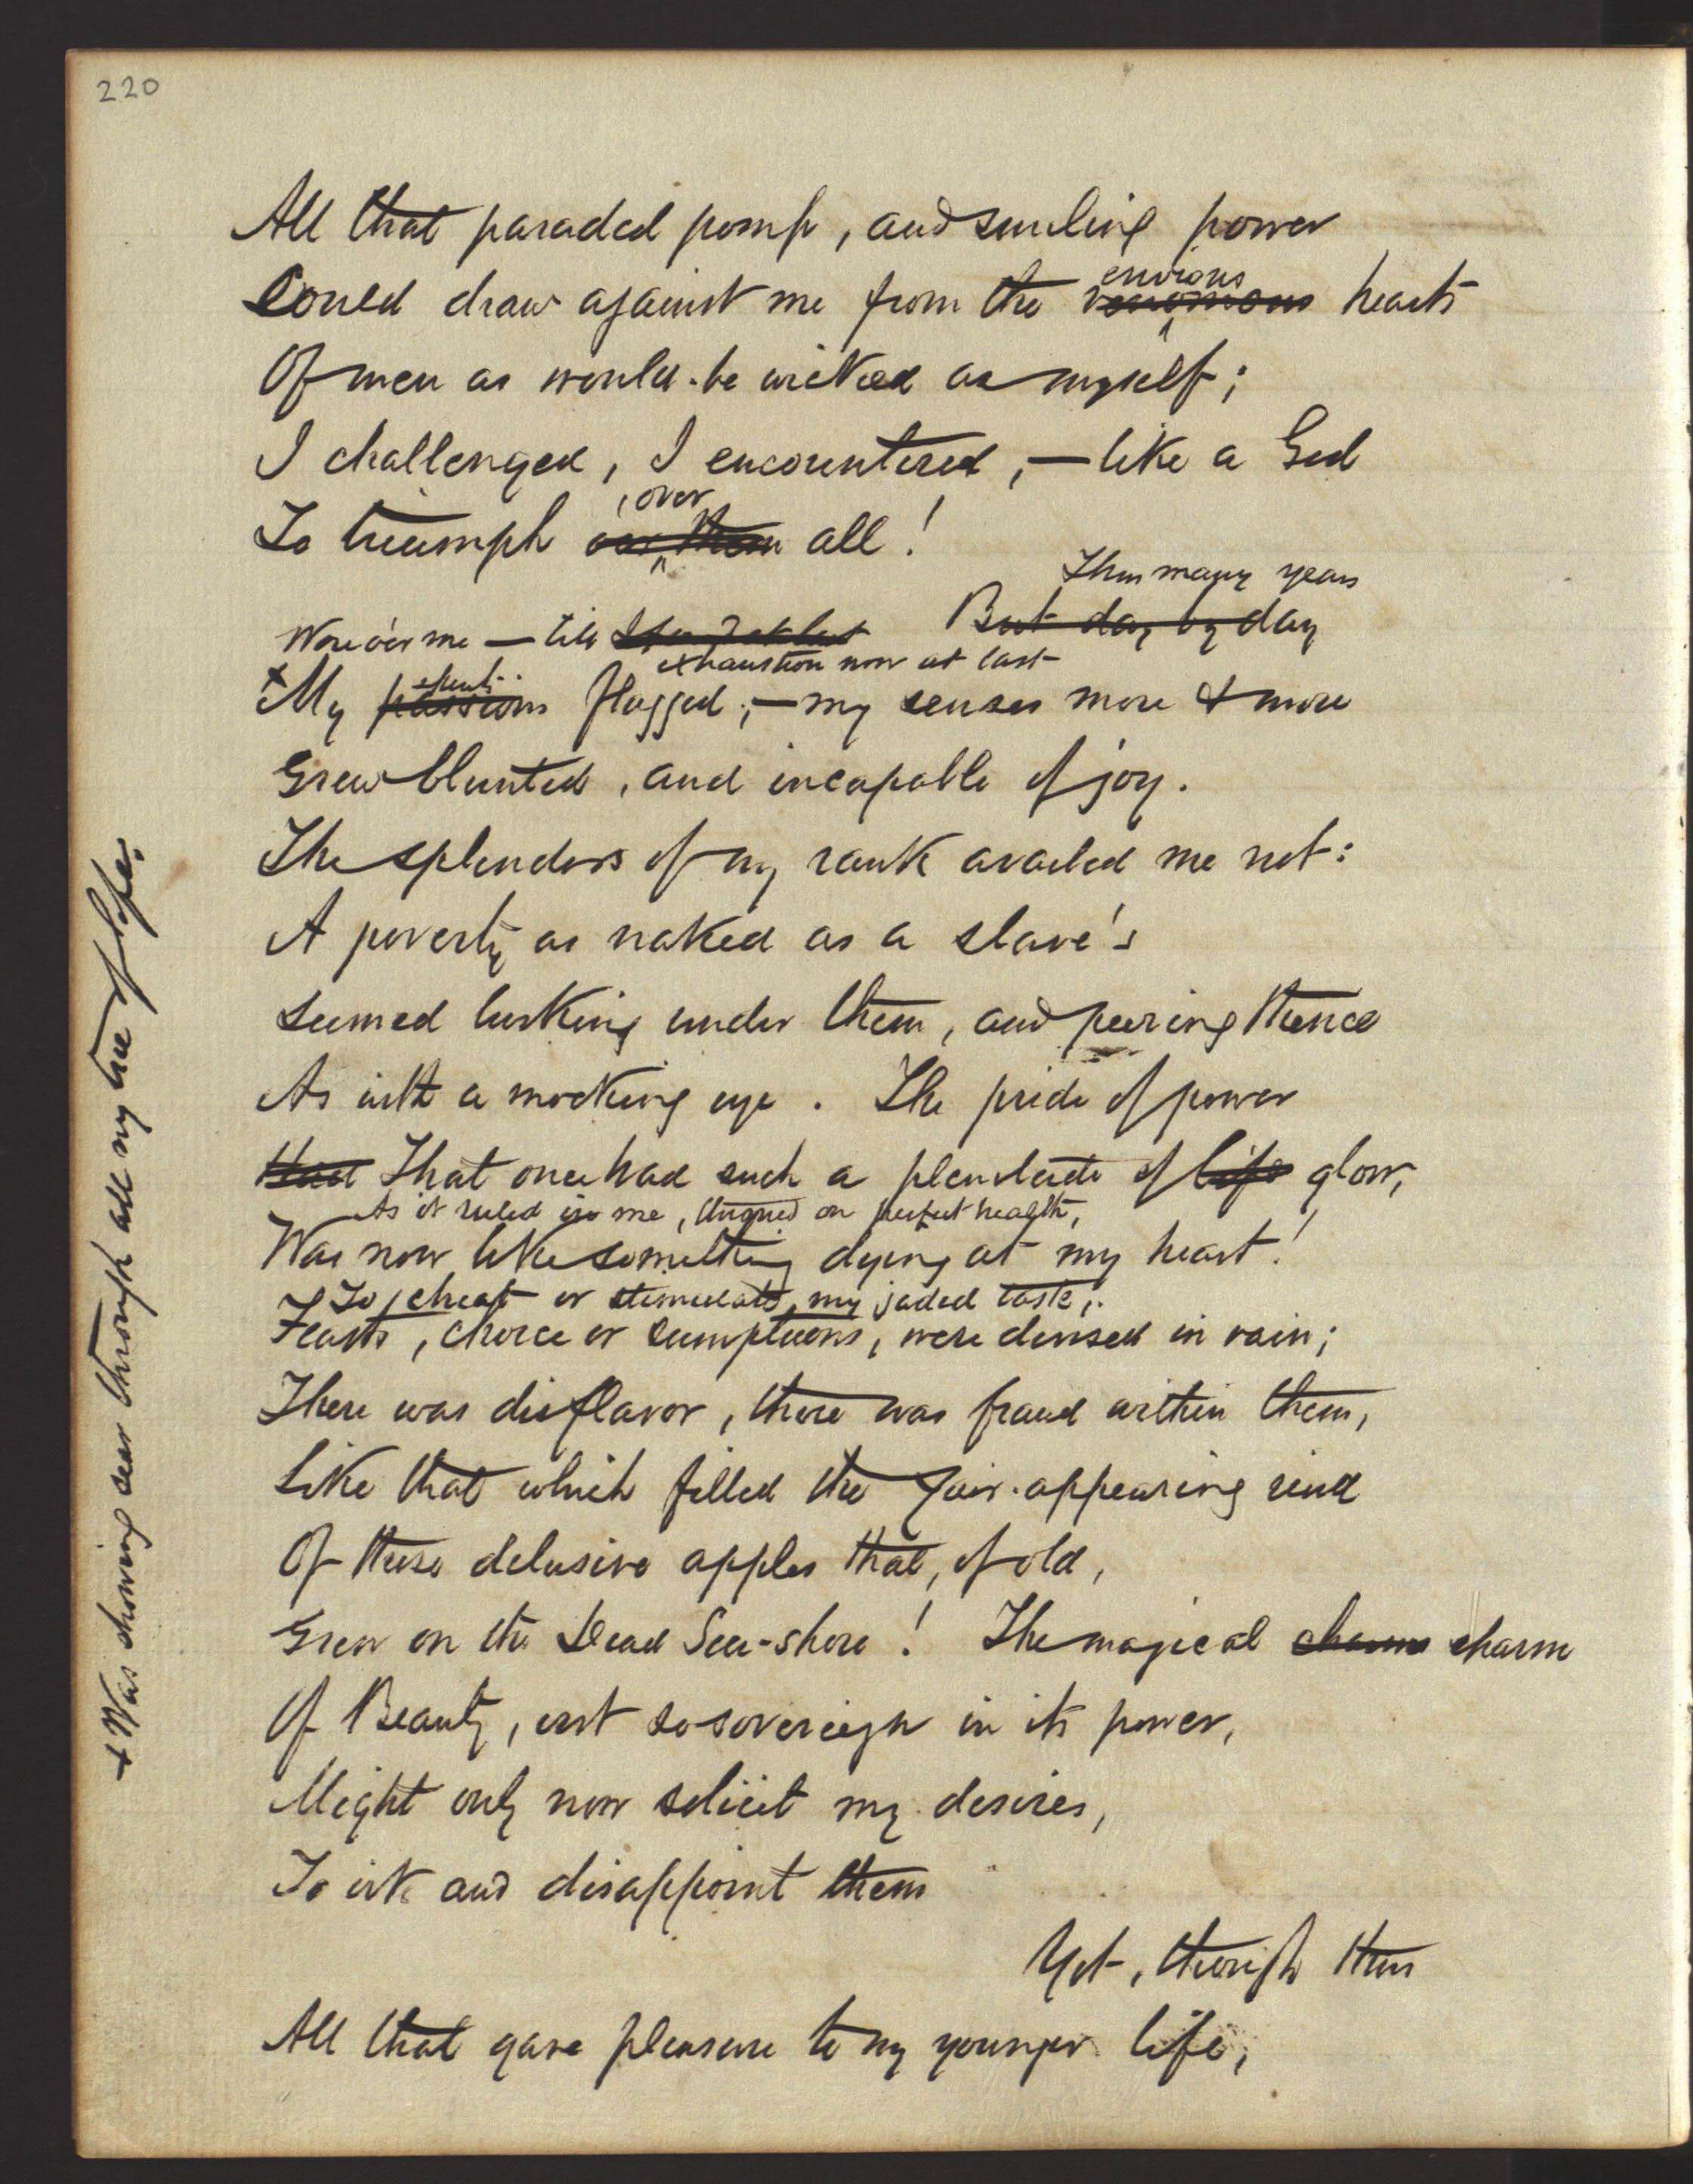 220
All that paraded pomp, and smiling power
Could draw against me from the venomous envious hearts
Of men as would-be wicked as myself;
I challenged, I encountered, — like a God
To triumph o'er them , over all!
Thus many years
But day by day
Wore o'er me — till
exhaustion now at last
+ My passions flagged; — my senses more & more
Grew blunted, and incapable of joy.
The splendors of my rank availed me not:
A poverty as naked as a slave's
Seemed lurking under them, and peering thence
As with a mocking eye. The pride of power
Had That once had such a plenitude of life glow,
As it ruled in me, throned on perfect health,
Was now like something dying at my heart!
To cheat or stimulate my jaded taste,
Feasts, choice or sumptuous, were devised in vain;
There was disflavor, there was fraud within them,
Like that which filled the fair-appearing rind
Of those delusive apples that, of old,
Grew on the Dead Sea-shore! The magical charms charm
Of Beauty, erst so sovereign in its power,
Might only now solicit my desires,
To irk and disappoint them
Yet, though thus
All that gave pleasure to my younger life,
+ Was showing sear through all my tree of life.